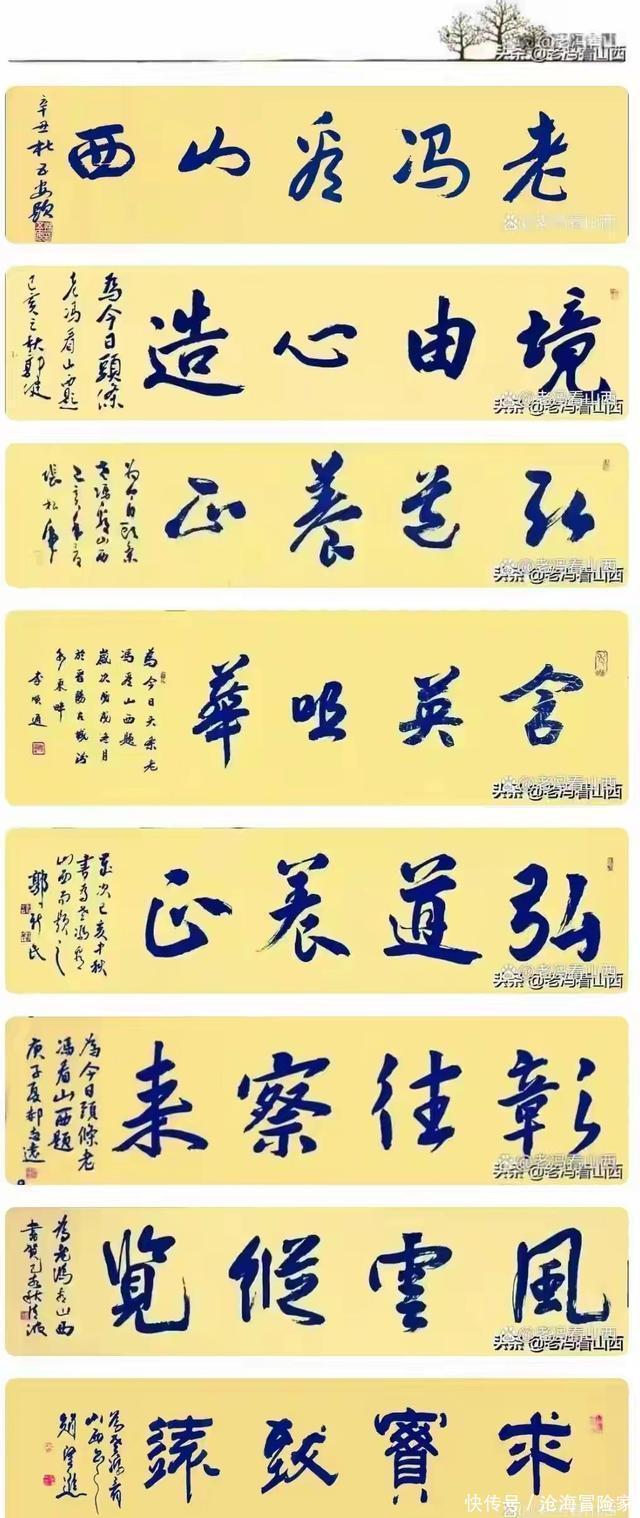 头条 @老冯看山西
老冯看山西
辛丑杜五安题
老冯看山西
境由心造
為今日頭條
老冯看山西题
己亥之秋郭健
头条 @老冯看山西
弘道養正
为今日头条
老冯看山西
头条 @老冯看山西
含英咀華
為今日头条老
冯看山西题
歲次戊戌冬月
於晋陽古城汾
水東畔
李顺通
头条 @老冯看山西
弘道养正
歲次己亥中秋
書為老冯看
山西而题之
郭新民
头条 @老冯看山西
彰往察来
為今日頭條老
冯看山西题
庚子夏郝
头条 @老冯看山西
風雲縱覽
為老冯看山西
書贺己亥秋
头条 @老冯看山西
求寶致遠
為老冯看
山西
趙望進
快传号 / 沧海冒险家